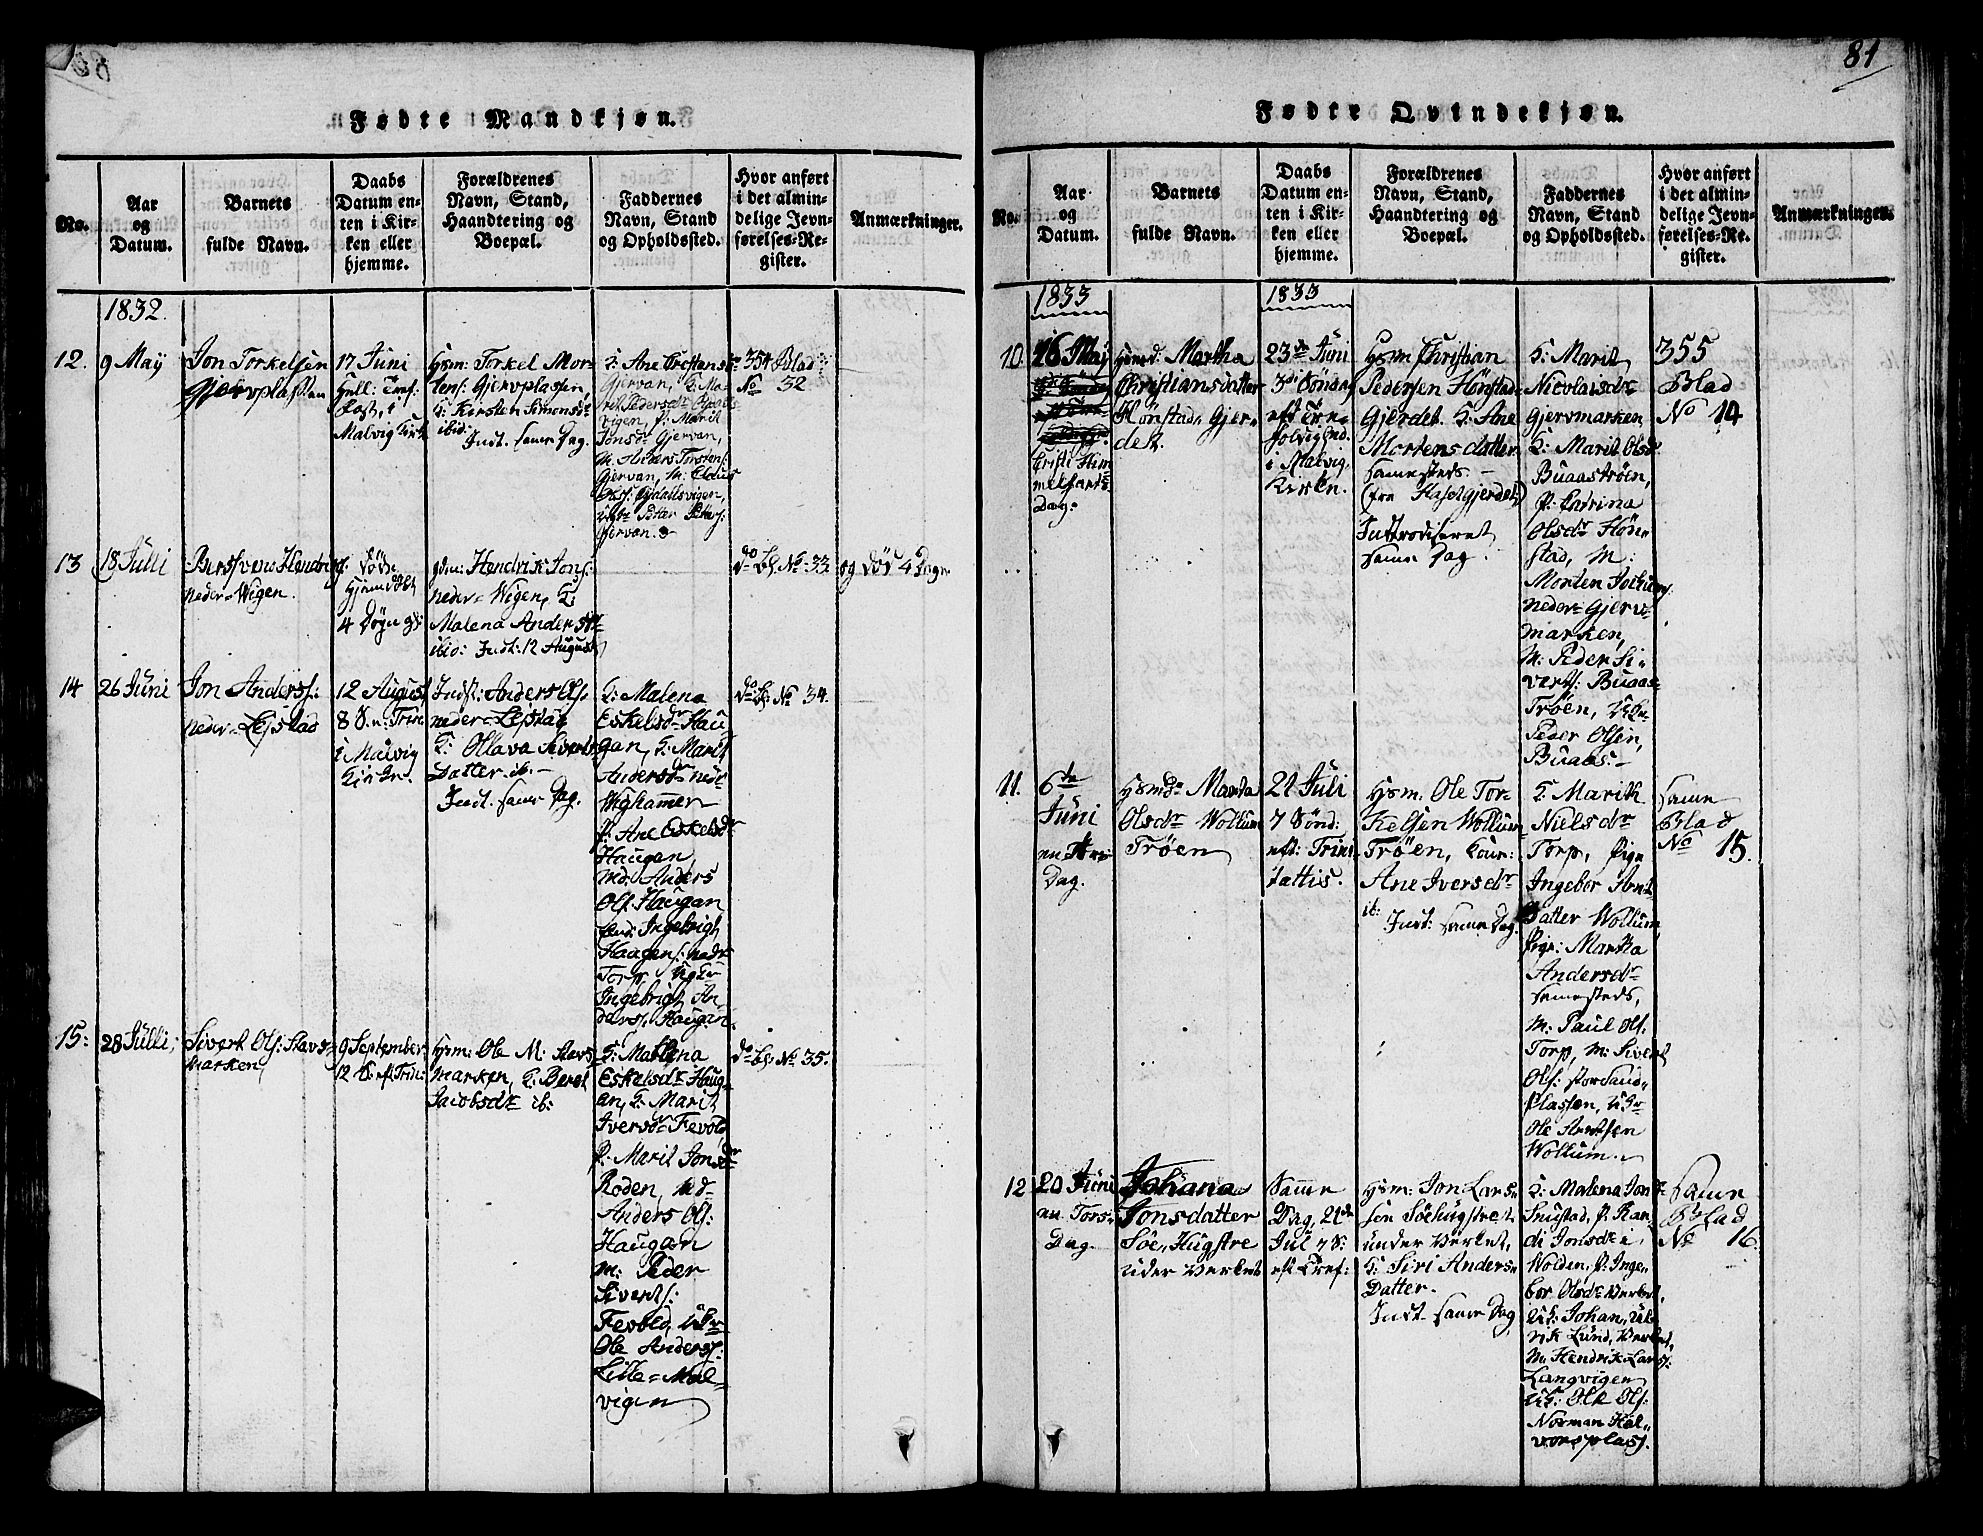 Fødte Mandkjøn.
No.
Aar
og
Datum.
Barnets
fulde Navn.
Daabs
Datum en-
ten i Kir-
ken eller
hjemme.
Forældrenes
Navn, Stand,
Haandtering og
Boepæl.
Faddernes
Navn, Stand
og Opholdssted.
Hvor anført
i det almin-
delige Jevn-
førelses-Re-
gister.
Anmærkninger.
1832.
12.
9 Maÿ
Jon Torkelsen
Gjervplassen
17 Juni
Malvig Kirk
Hsm: Torkel Mor-
tens: Gjervplassen,
K: Kirsten Simonsdr
ibid:
Indt. samme Dag.
Gjervan, K: Ma-
vigen, P: Marit
Jonsdr Gjervan,
M. Anders Torstens:
Gjervan, M. Claus
Gjervan.
354 Blad
No 32
13
18 Julli
neder-Wigen.
Døbt
Hjemdøbt
4 Døgn gl:
gdm: Hendrik Jons:
neder-Wigen, K:
Malena Andersdtr
ibid: Indt: 12 August
do Bl. No 33
og død 4 Dage
14
26 Juni
Jon Anders:
neder-Lejstad
12 August
8 S. e: Trin:
i Malvig
Kirke.
Indst: Anders Ols:
neder-Lejstad
K: Ollava Siverts
Datter ib.-
Indt. samme Dag.
K: Malena
Eskelsdr Hau-
gan, K: Marit
Andersdr nedr
Wighammer
P: Ane Eskelsdr
Haugan,
Md. Anders
Ols. Haugan
Ingebrigt
Haagens: nedr
Torp, Ugkr
Ingebrigt An-
ders. Haugan.
do Bl. No 34.
15:
28 Julli;
Sivert Ols: Stavs-
marken,
9 September
12 S: eft Trin:
Hsm: Ole M: Stavs-
marken, K: Beret
Jacobsdr ib:
K: Mallena
Eskelsdr Haug-
an, K: Marit
Iversdr Fevold
P. Marit Jonsdr
Roden, Md-
Anders Ols:
Haugan
M: Peder
Siverts:
Fevold, Ukr
Ole Anders:
Lille-Mal-
vigen
do Bl. No 35.
81
Fødte Qvindekjøn.
No.
Aar
og
Datum.
Barnets
fulde Navn.
Daabs
Datum en-
ten i Kir-
ken eller
hjemme.
Forældrenes
Navn, Stand,
Haandtering og
Boepæl.
Faddernes
Navn, Stand
og Opholdssted.
Hvor anført
i det almin-
delige Jevn-
førelses-Re-
gister.
Anmærkninger.
1833
1833
10.
16 Maÿ
Cristi Him
melfarts
Dag.
Hsmd: Martha
Christiansdatter
Hønstad-Gjer-
det.
23de Juni
3die Sønda
eft Trin
i Malvig
Kirke.
Hsm Christian
Pedersen Hønstad-
Gjerdet. K: Ane
Mortensdatter
samesteds -
(fra Hasetgjerdet)
Inttrodiseret
samme Dag.
K: Marit
Nicolaisdr
Gjervmarken
K: Marit Olsdr
Buaastrøen,
P. Catrina
Olsdr Høn-
stad, M:
Morten Jochums
neder Gjerv-
marken,
M: Peder Si-
verts: Buaas-
Trøen, U.K.
Peder Olsen,
Buaas.-
355
Blad
No 14
11.
6te
Juni
en Tors
Dag.
Hsmdr Marta
Olsdr Wollum
Trøen
21 Juli
7 Sønd:
eft: Trini
tattis.
Hsm. Ole Tor-
kelsen Wollum
Trøen, Kone:
Ane Iversdr
ib:
Indt: samme Dag.
K. Marith
Nielsdr
Torp, Pige
Ingebor Arnt
Datter Wollum
Pige: Martha
Andersdr
samesteds,
M: Paul Ols.
Torp, M: Sivert
Ols: storsand-
plassen, U K
Ole Arntsen
Wollum.
samme
Blad
No 15.
12
20 Juni
en Tors-
Dag.
Johana
Jonsdatter
Söe, Hugstre
under Verket
Samme
Dag, 21de
Jul 7 S:
eft Tref:
Hsm: Jon Lars
sen Söehugstret
under Verket,
K: Siri Anders-
Datter.
Indt- samme Dag
K: Malena Jonsdr
Snustad, P. Ran-
di Jonsdr
Wolden, P. Inge-
bor Olsdr Verket,
Johan, Ul-
rik Lund, Verket,
M. Hendrik Lars:
Langvigen
U K: Ole Ols:
Norman Hal-
vorsplass.
Samme
Blad
No 16.